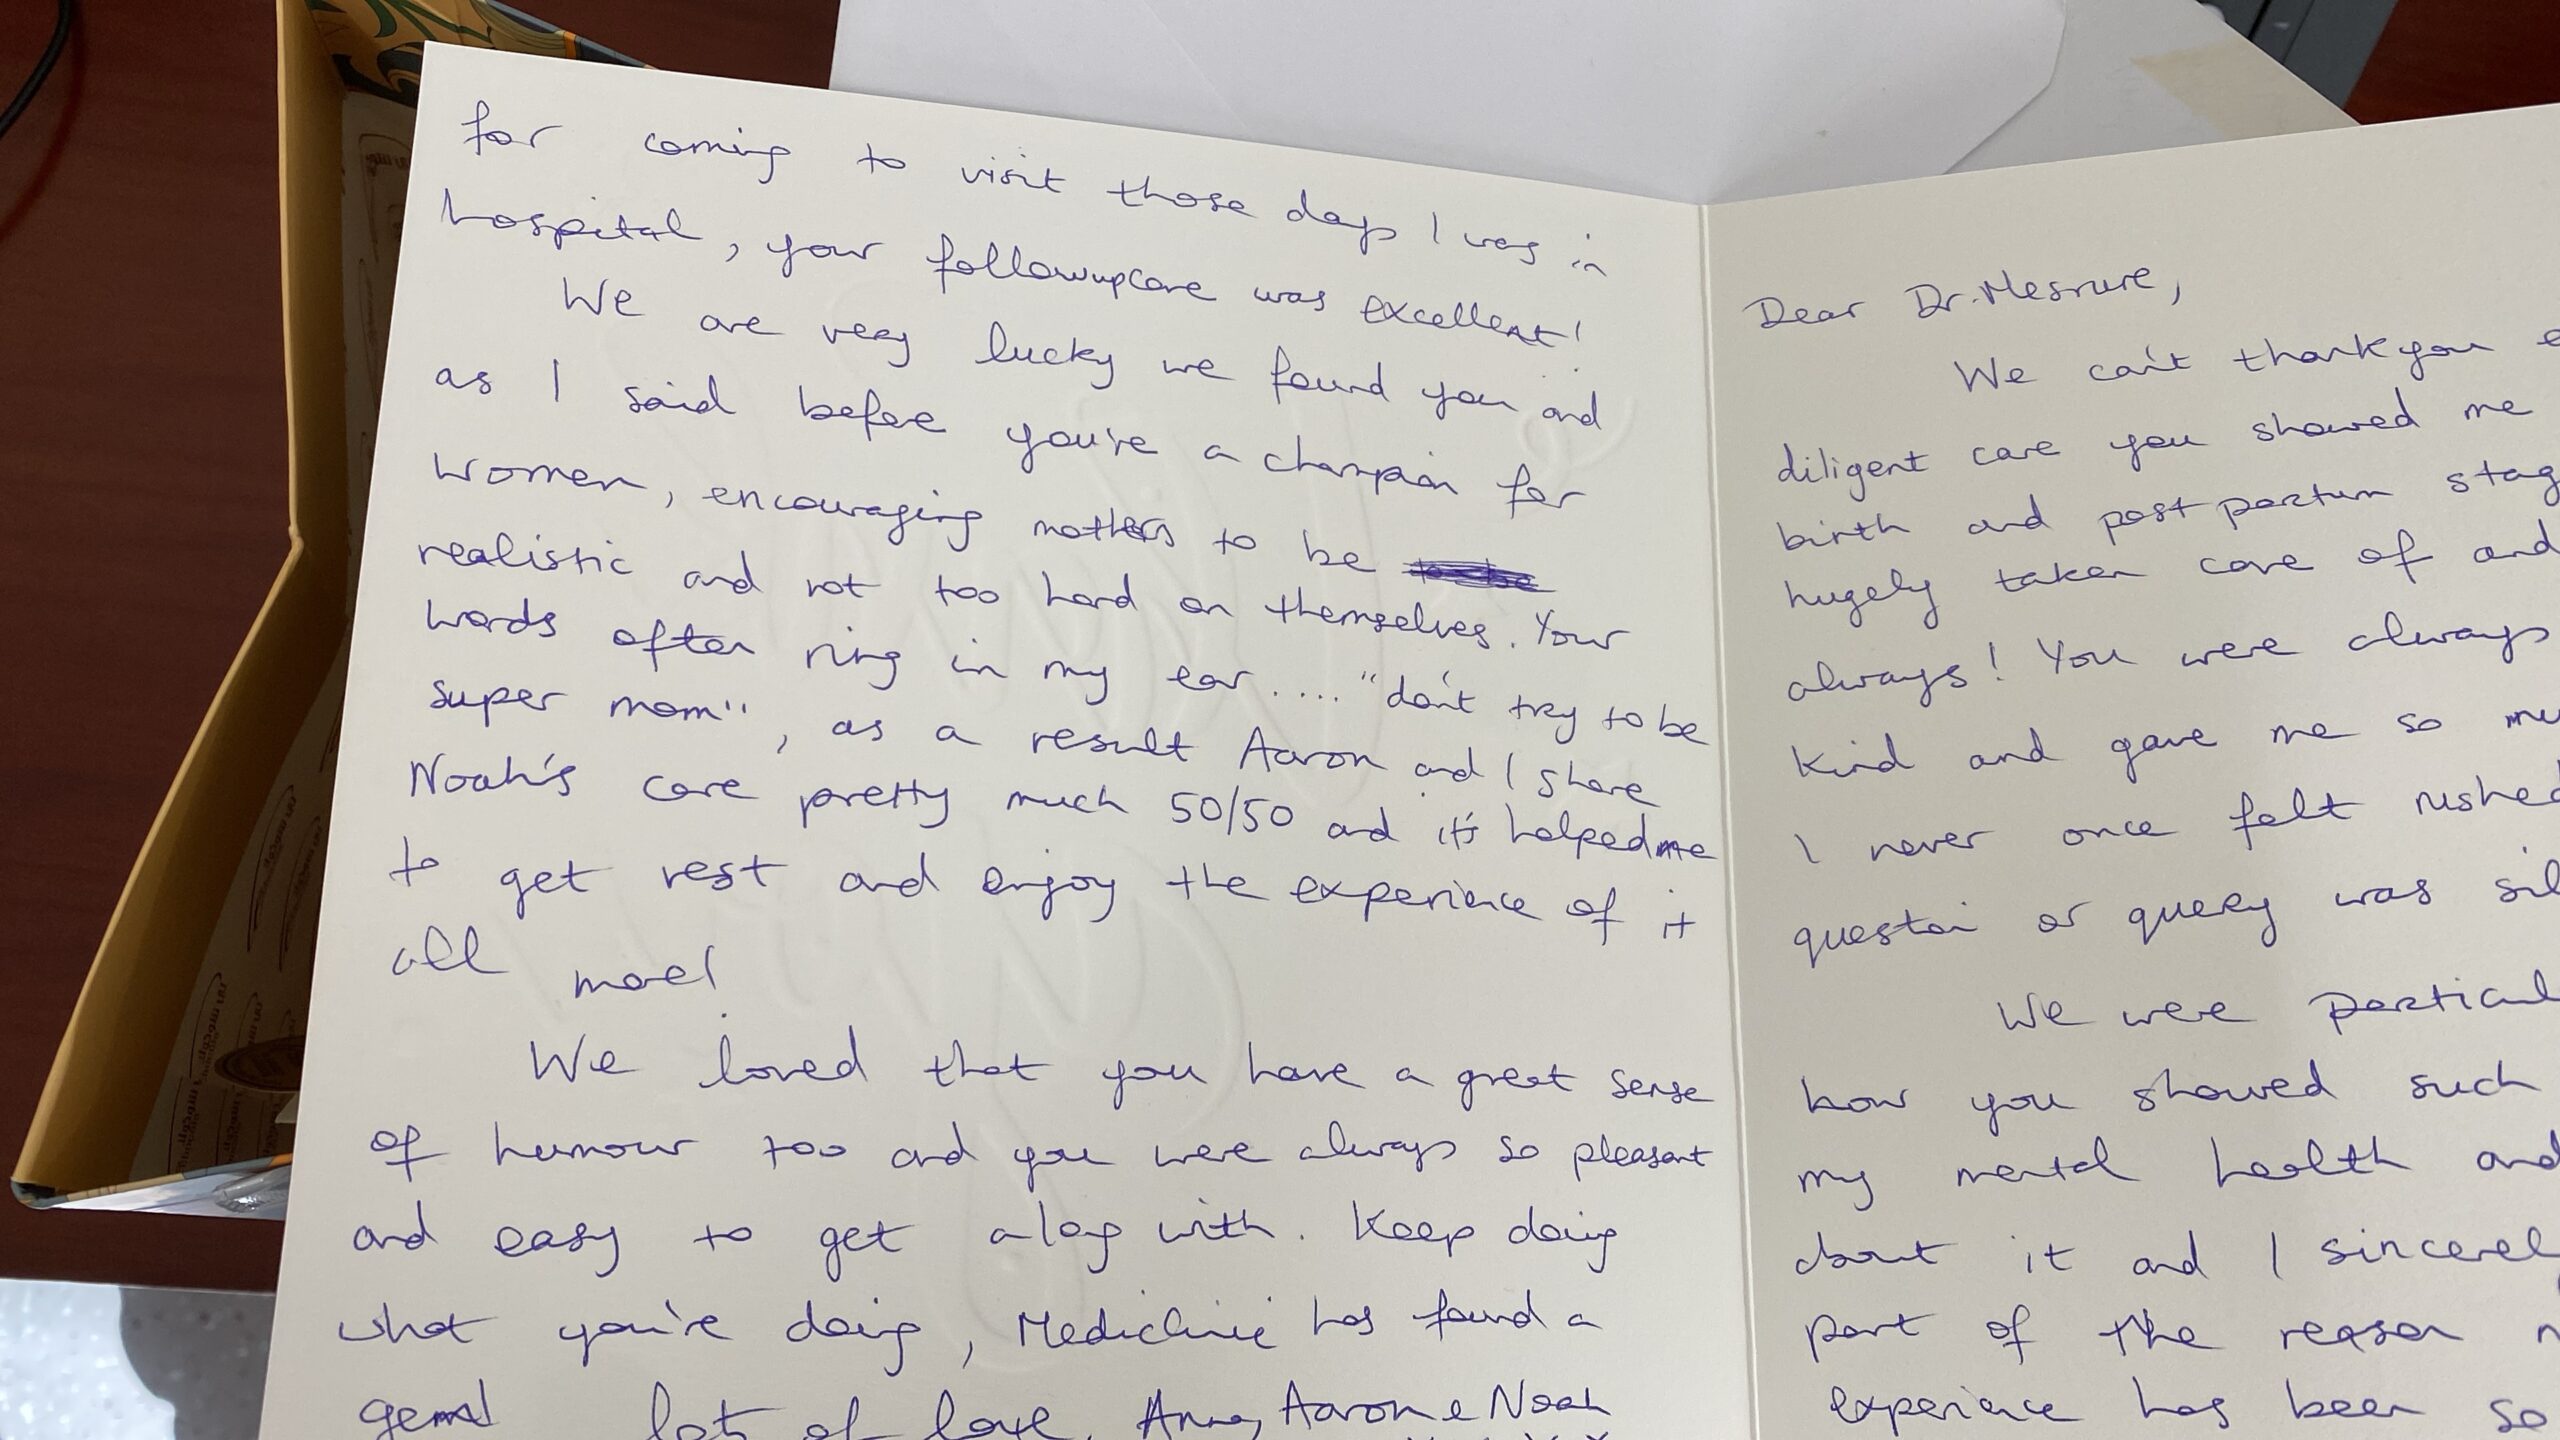 for coming to visit those days I was in
hospital, your followupcare was excellent!
We are very lucky we found you and
as I said before you're a champion for
women, encouraging mothers to be
realistic and not too hard on themselves. Your
words often ring in my ear.... "don't try to be
super mom", as a result Aaron and I share
Noah's care pretty much 50/50 and it's helped me
to get rest and enjoy the experience of it
all more!
We loved that you have a great sense
of humour too and you were always so pleasant
and easy to get along with. Keep doing
what you're doing, Mediclinic has found a
gem! lots of love, Anna, Aaron & Noah
Dear Dr. Mesrure,
We can't thank you
diligent care you showed me
birth and post partum stag
hugely taken care of and
always! You were always
kind and gave me so mu
I never once felt rushed
question or query was sil
We were particul
how you showed such
my mental health and
about it and I sincerel
part of the reason
experience has been so